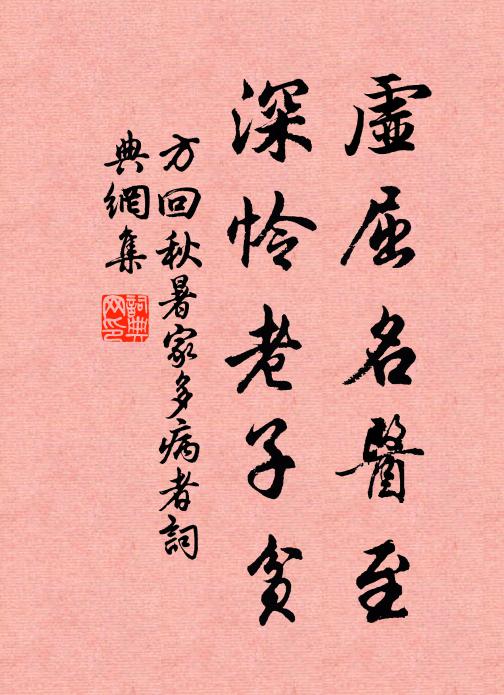 虛屈名醫至
深怜老子貧
方回秋暑家多病者詞
典網集
詞典
网印